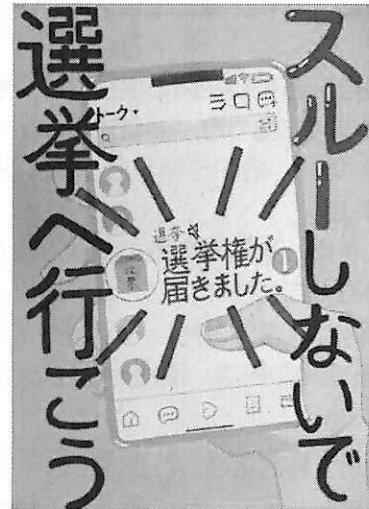 スルーしないで
選挙へ行こう
トーク
選挙
選挙権が
届きました。
1
投票